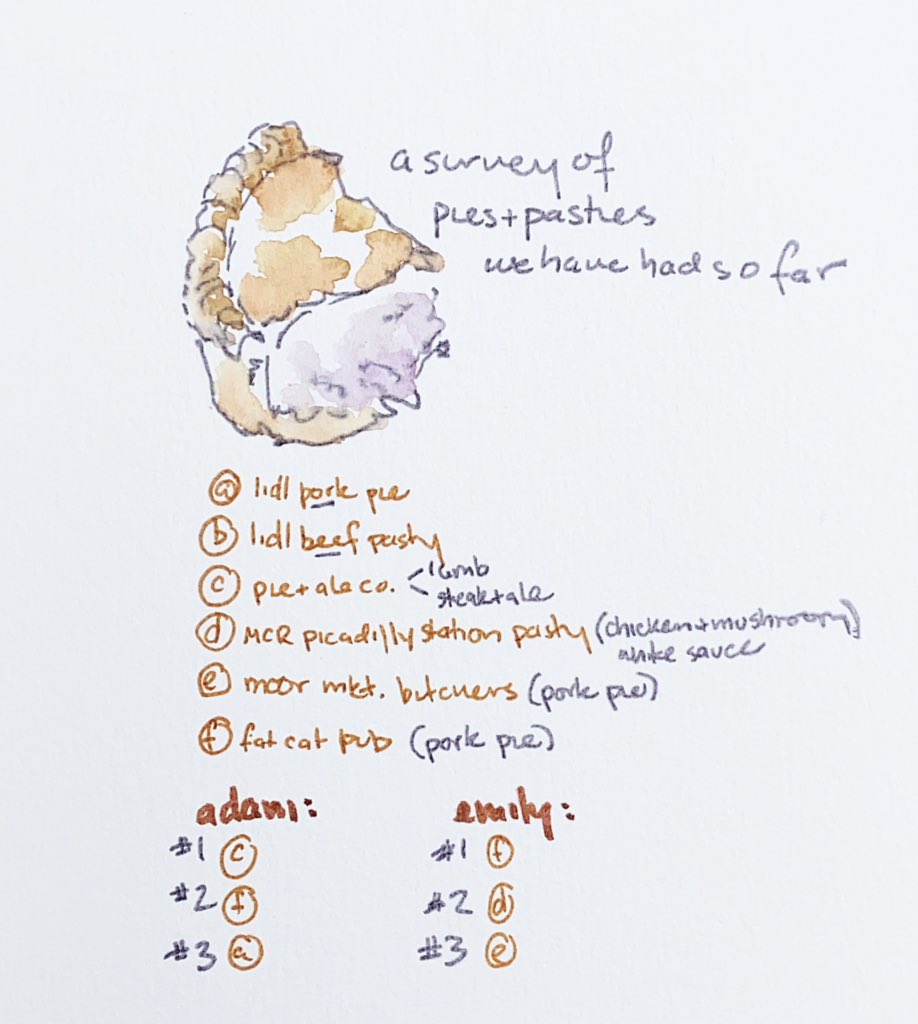 a survey of
pies + pasties
we have had so far
ⓐ lidl pork pie
ⓑ lidl beef pasty
ⓒ pie + ale co. < lamb
steak + ale
ⓓ MCR picadilly station pasty (chicken + mushroom)
white sauce
ⓔ moor mkt. butchers (pork pie)
ⓕ fat cat pub (pork pie)
adam: emily:
#1 ⓒ #1 ⓕ
#2 ⓕ #2 ⓓ
#3 ⓐ #3 ⓔ